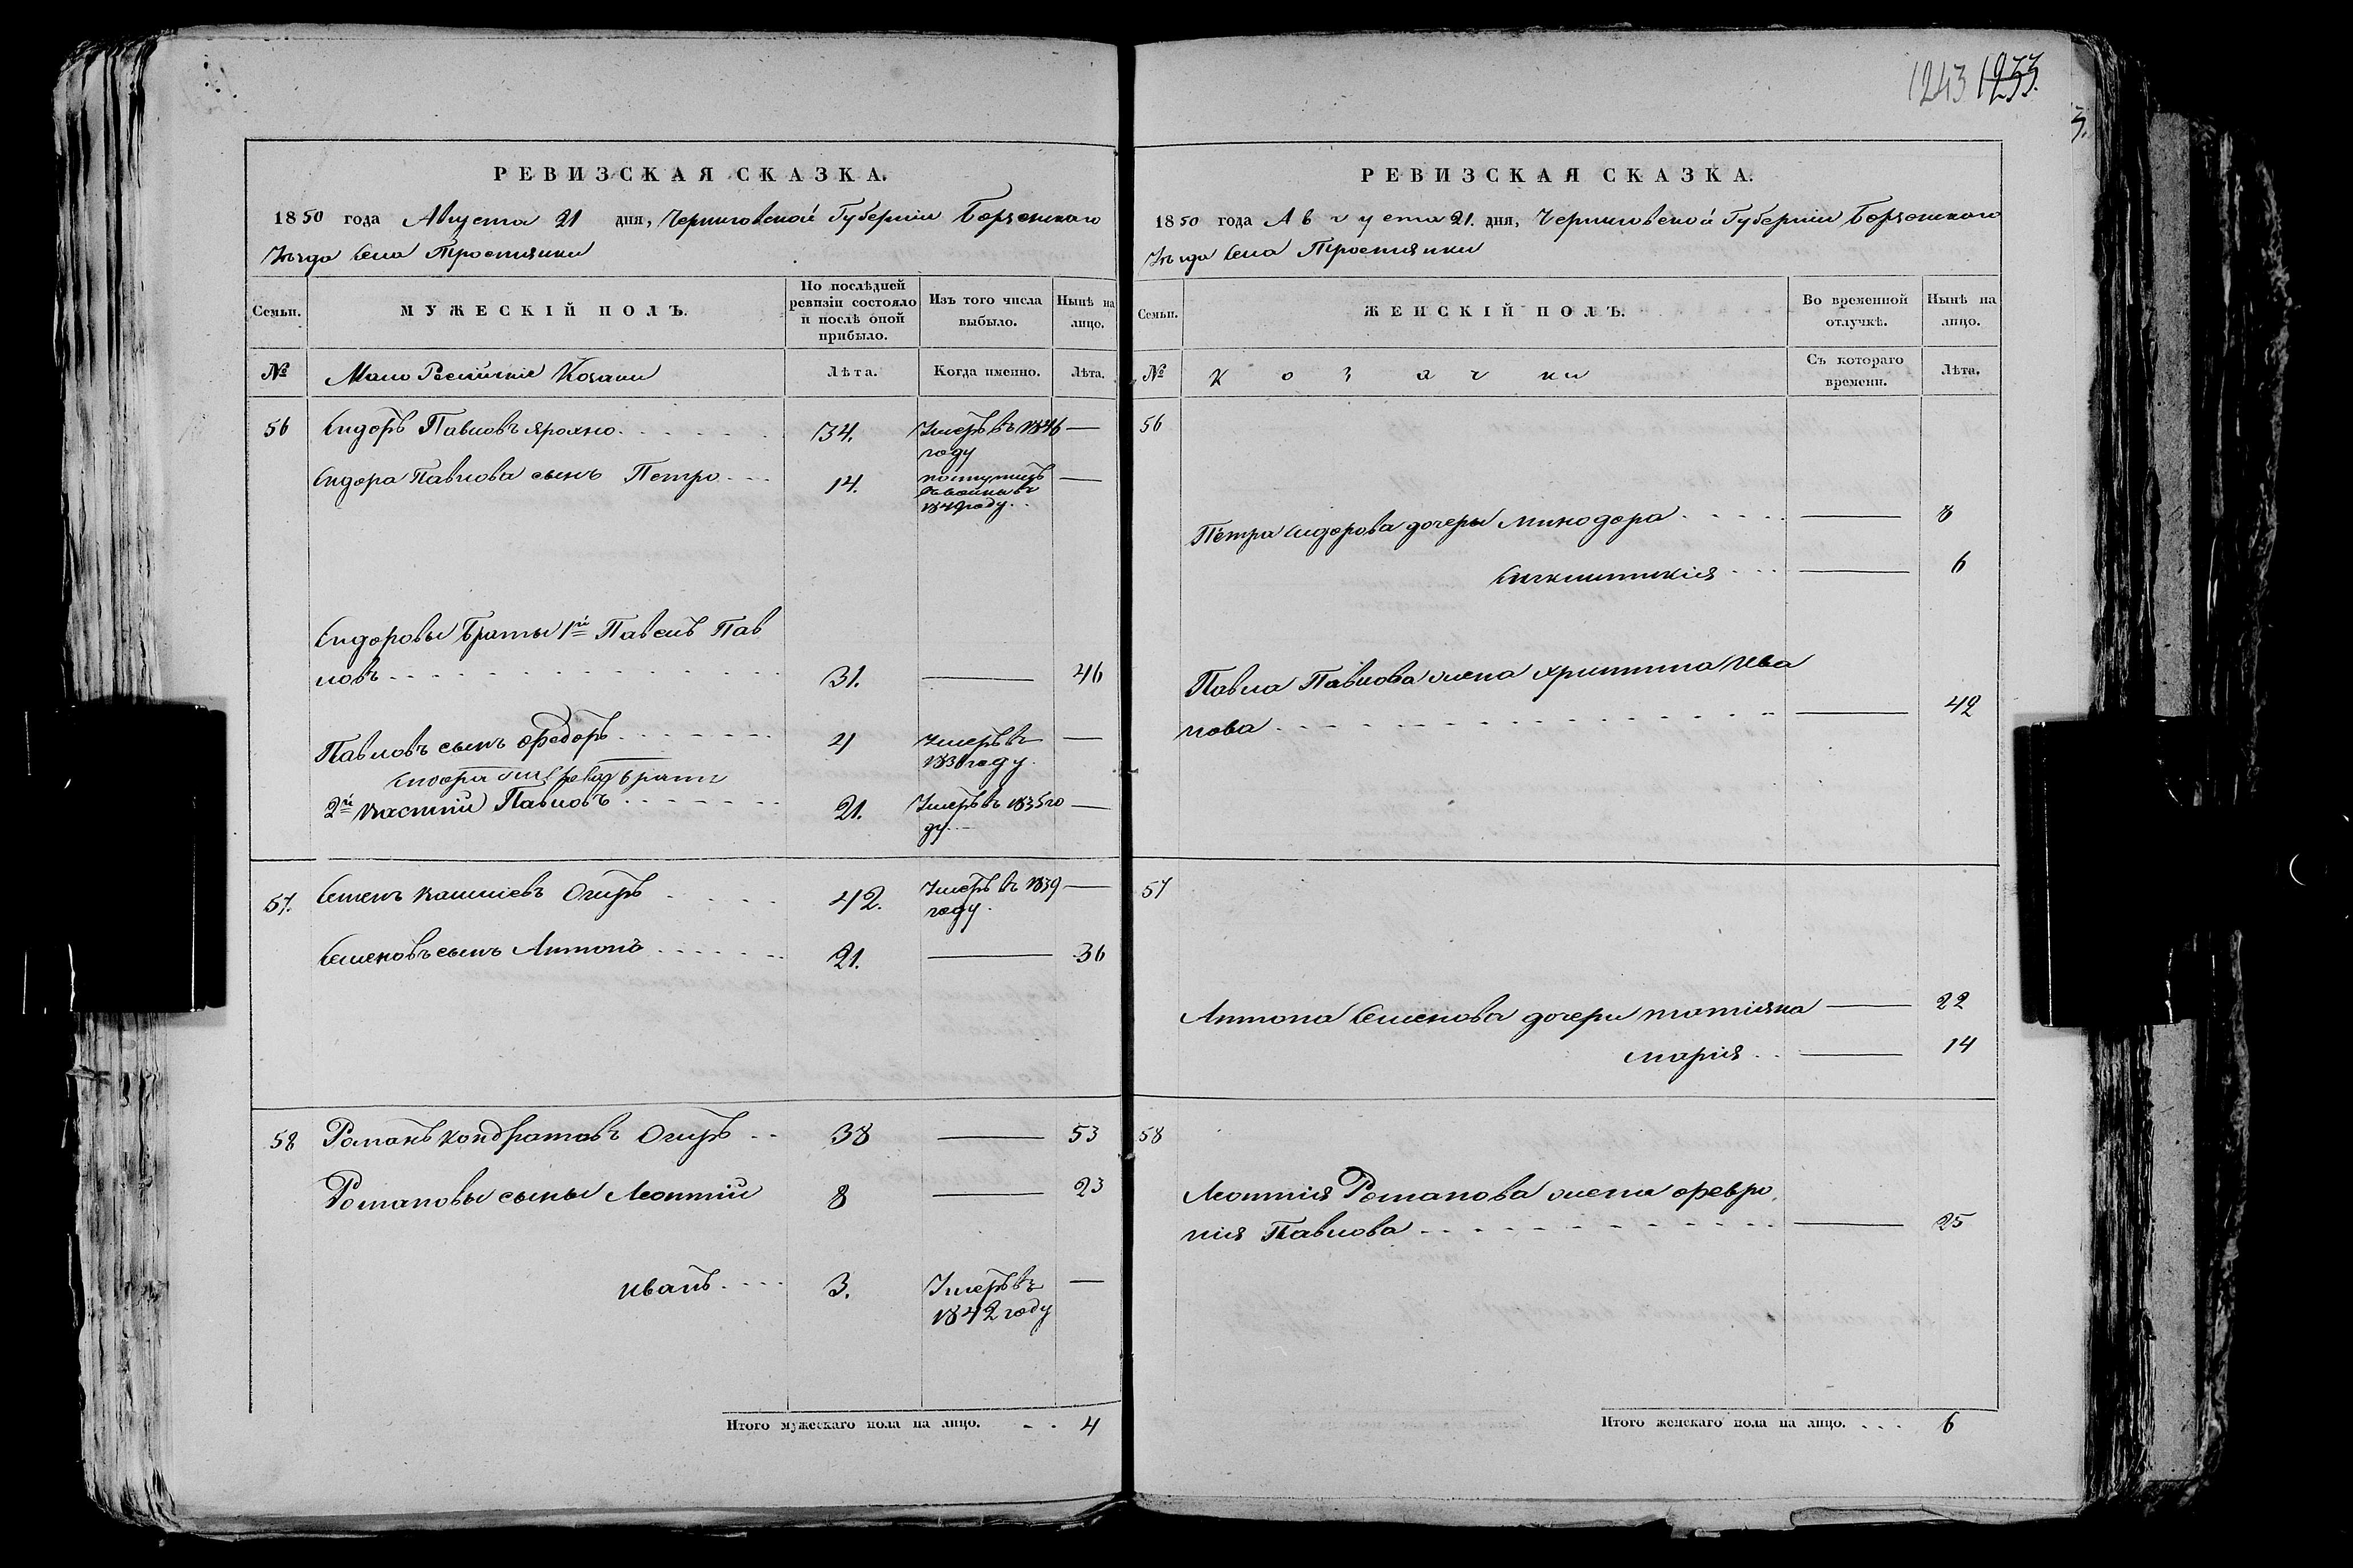 1243 1233.
3.
РЕВИЗСКАЯ СКАЗКА.
1850 года Августа 21 дня, Черниговской Губерніи Борзенского
Уѣзда Села Тростянки
Семьи.
МУЖЕСКІЙ ПОЛЪ.
По послѣдней ревизіи состояло и послѣ оной прибыло.
Изъ того числа выбыло.
Нынѣ на лицо.
№
Мало Россійскіе Козаки
Лѣта.
Когда именно.
Лѣта.
56 Сидоръ Павловъ 34. Умеръ въ 1846 году —
Сидора Павлова сынъ Петро 14. поступилъ 1849 году —
Сидоровы Браты 1й Павелъ Пав
ловъ 31. — 46
Павловъ сынъ Федоръ 4 Умеръ въ году —
Сидора братъ
2й Павловъ 21. Умеръ въ 1835 го
ду —
57. Семенъ Огирь 42. Умеръ въ 1839 году —
Семеновъ сынъ Антонъ 21. — 36
58 Романъ Кондратовъ Огирь 38 — 53
Романовы сыны Леонтій 8 — 23
Иванъ 3. Умеръ въ —
1842 году
Итого мужескаго пола на лицо. 4
РЕВИЗСКАЯ СКАЗКА.
1850 года Августа 21. дня, Черниговской Губерніи Борзенского
Уѣзда Села Тростянки
Семьи.
ЖЕНСКІЙ ПОЛЪ.
Во временной отлучкѣ.
Нынѣ на лицо.
№
Козачки
Съ котораго времени.
Лѣта.
56
Петра Сидорова дочеры Минодора — 8
— 6
Павла Павлова жена Христина Ива
нова — 42
57
Антона Семенова дочери Татіяна — 22
Марія — 14
58
Леонтія Романова жена Февро
нія Павлова — 25
Итого женскаго пола на лицо. 6